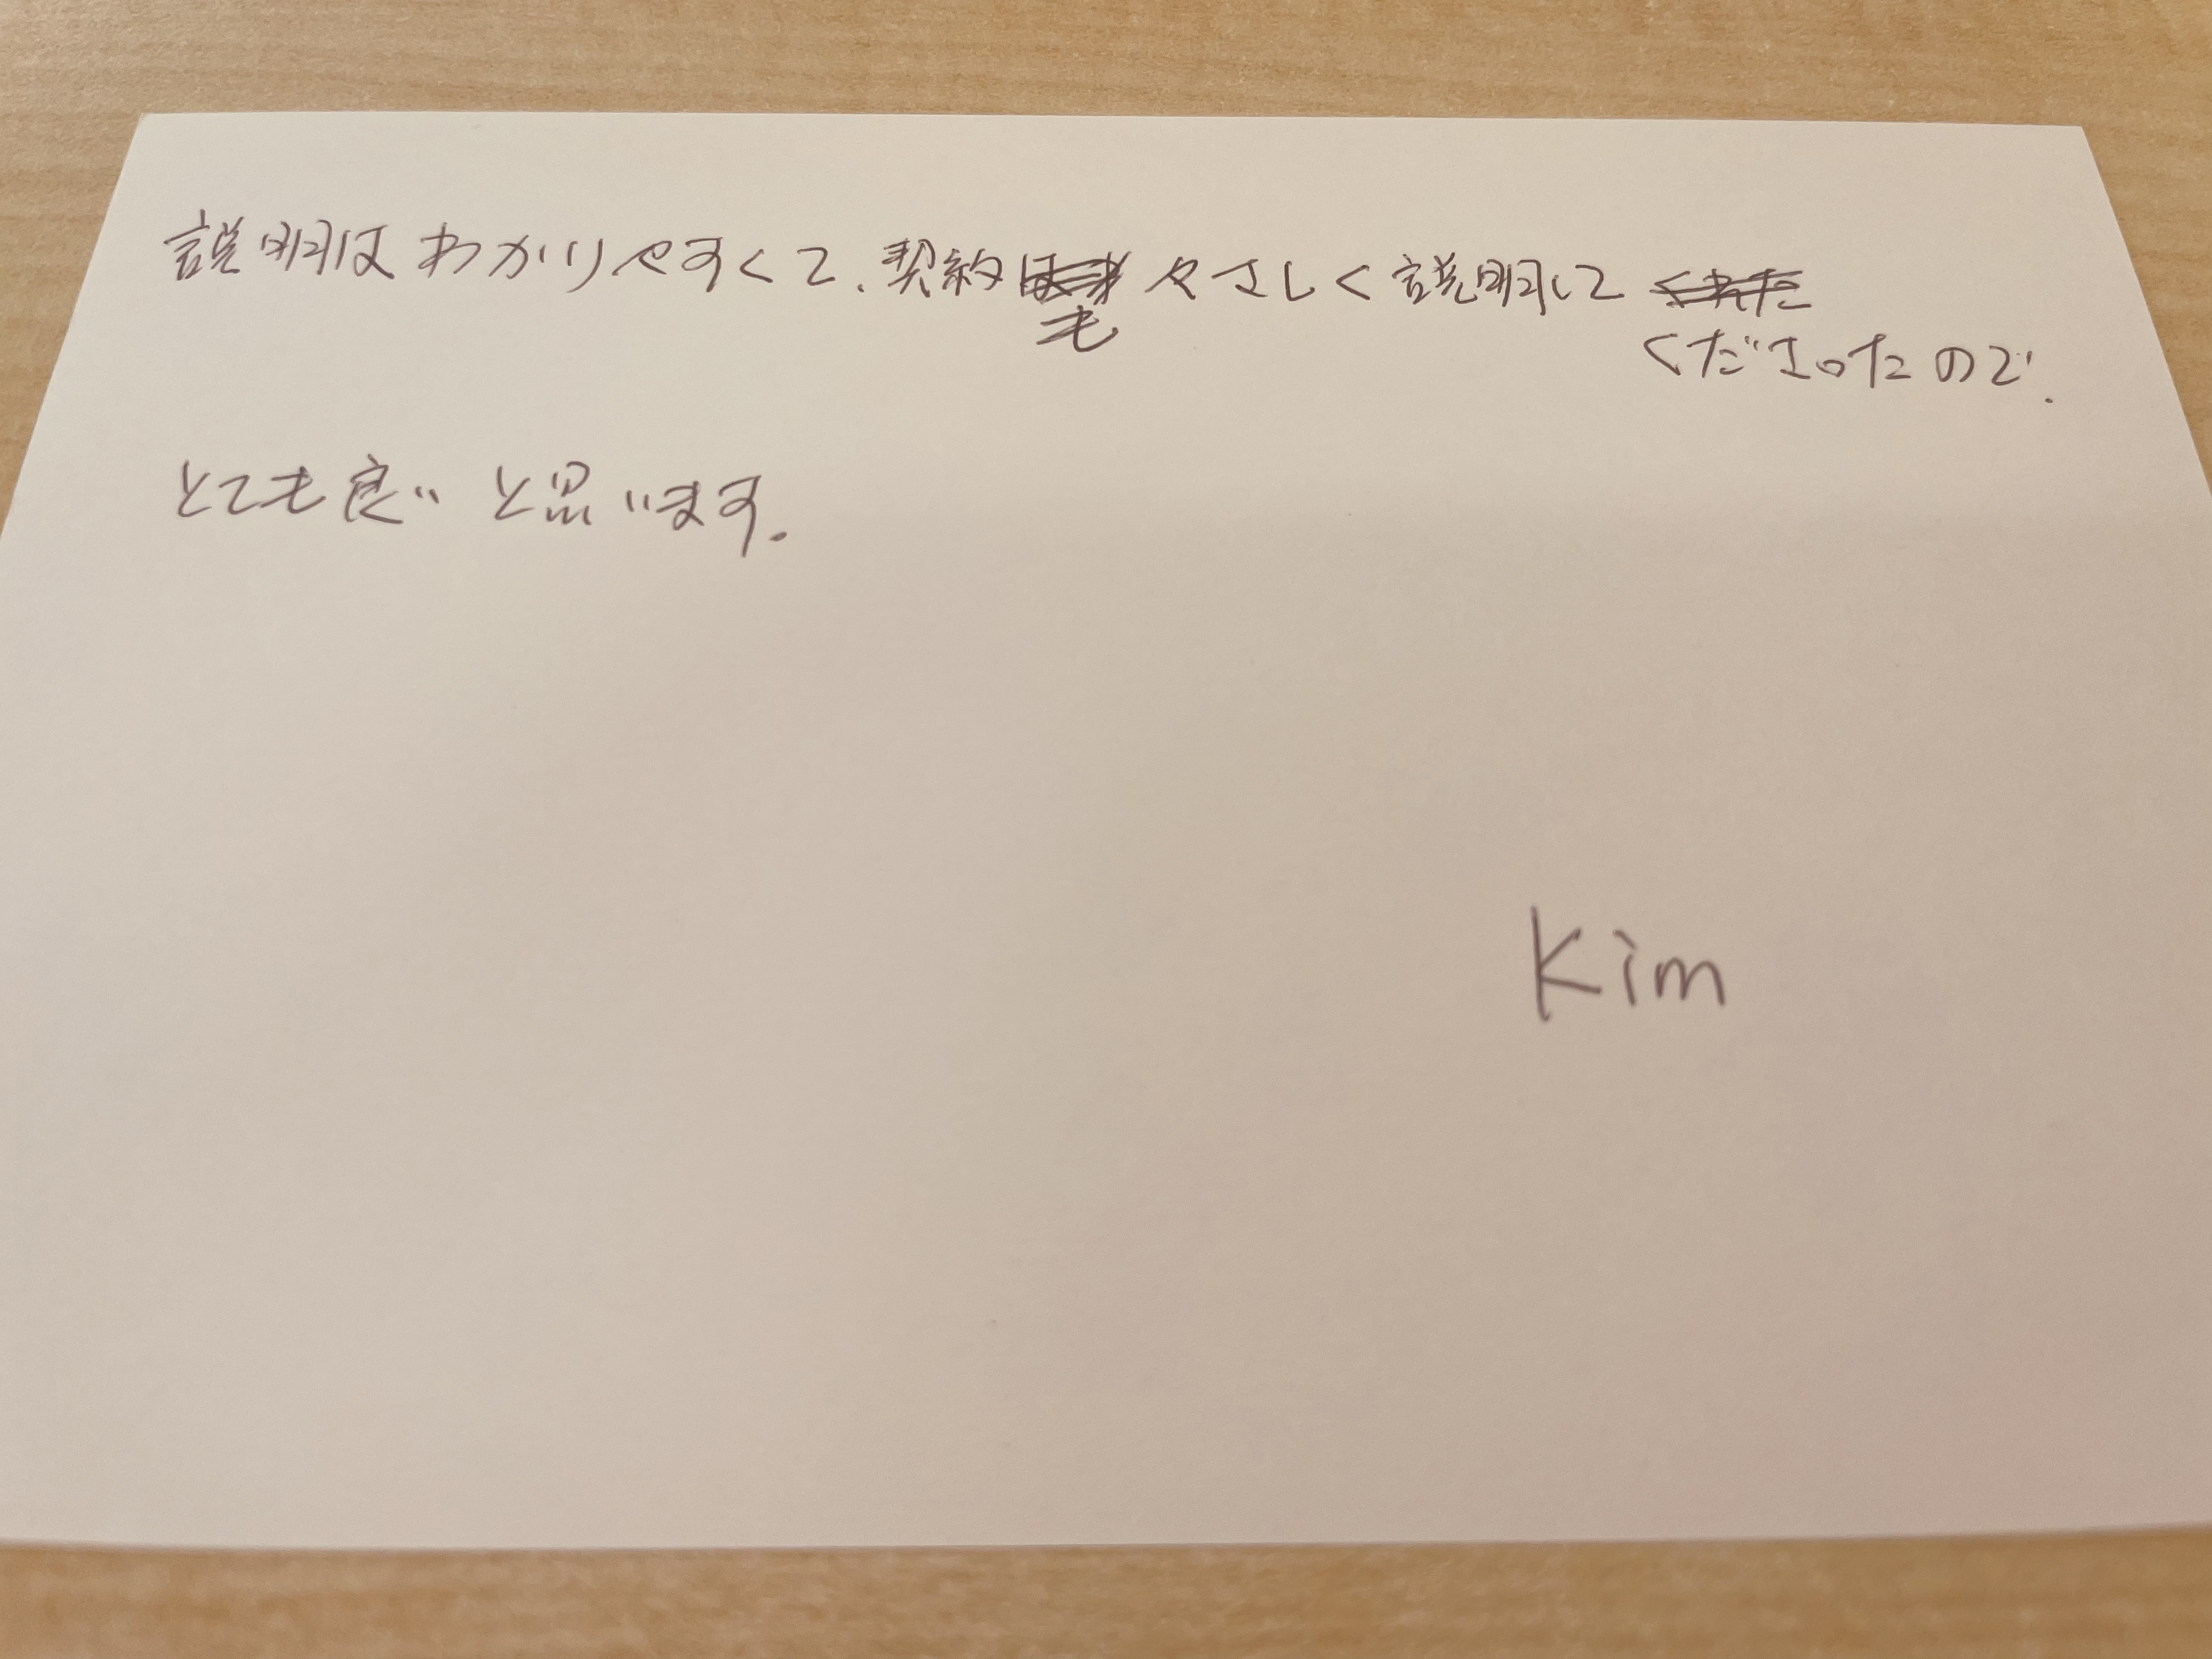 説明はわかりやすくて、契約もやさしく説明して
くださったので、
とても良いと思います。
Kim